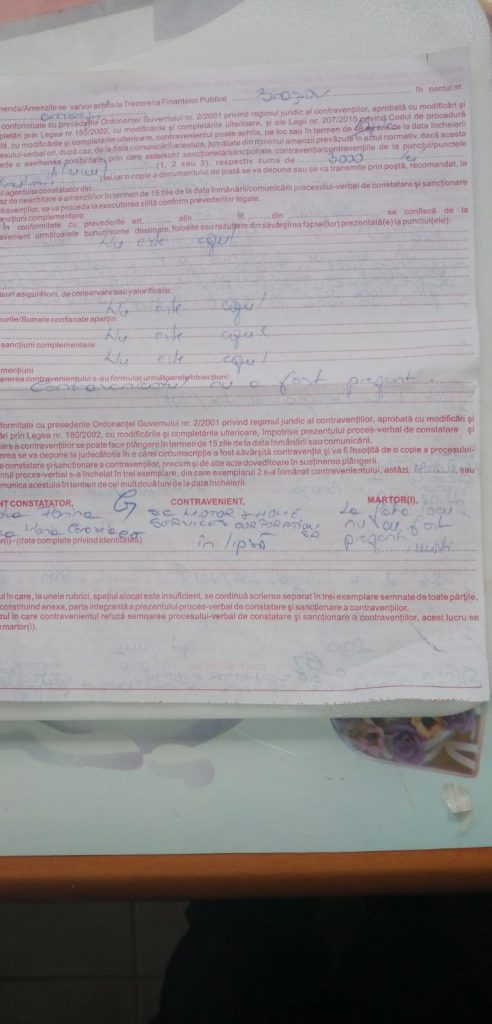 menda/Amenzile se va/vor achita la Trezoreria Finanţelor Publice Buzău în contul nr.
conformitate cu prevederile Ordonanţei Guvernului nr. 2/2001 privind regimul juridic al contravenţiilor, aprobată cu modificări şi
pletări prin Legea nr.180/2002, cu modificările şi completările ulterioare, şi ale Legii nr. 207/2015 privind Codul de procedură
ă, cu modificările şi completările ulterioare, contravenientul poate achita, pe loc sau în termen de de la data încheierii
esului-verbal ori, după caz, de la data comunicării acestuia, jumătate din minimul amenzii prevăzute în actul normativ, dacă acesta
ede o asemenea posibilitate, prin care este/sunt sancţionată/sancţionate contravenţia/contravenţiile de la punctul/punctele
(1, 2 sau 3), respectiv suma de 3000 lei
lei, iar o copie a documentului de plată se va depune sau se va transmite prin poştă, recomandat, la
ul agentului constatator din
az de neachitare a amenzii/lor în termen de 15 zile de la data înmânării/comunicării procesului-verbal de constatare şi sancţionare
travenţiilor, se va proceda la executarea silită conform prevederilor legale.
ancţiuni complementare:
în conformitate cu prevederile art. alin. lit. din se confiscă de la
avenient următoarele bunuri/sume destinate, folosite sau rezultate din săvârşirea faptei(lor) prezentată(e) la punctul(ele):
Nu este cazul
asuri asigurătorii, de conservare sau valorificare:
Nu este cazul
nurile/Sumele confiscate aparţin:
Nu este cazul
sancţiuni complementare:
Nu este cazul
menţiuni
ererea contravenientului s-au formulat următoarele obiecţiuni:
Contravenientul nu a fost prezent.
formitate cu prevederile Ordonanţei Guvernului nr. 2/2001 privind regimul juridic al contravenţiilor, aprobată cu modificări şi
ări prin Legea nr. 180/2002, cu modificările şi completările ulterioare, împotriva prezentului proces-verbal de constatare şi
are a contravenţiilor se poate face plângere în termen de 15 zile de la data înmânării sau comunicării.
erea se va depune la judecătoria în a cărei circumscripţie a fost săvârşită contravenţia şi va fi însoţită de o copie a procesului-
e constatare şi sancţionare a contravenţiilor, precum şi de alte acte doveditoare în susţinerea plângerii.
ntul proces-verbal s-a încheiat în trei exemplare, din care exemplarul 2 s-a înmânat contravenientului, astăzi, sau
munica acestuia în termen de cel mult două luni de la data încheierii.
NT CONSTATATOR, CONTRAVENIENT, MARTOR(I),
SC MOTOR HOME
SERVICES CORPORATION
în lipsă
La fața locului
nu au fost
prezenți martori
r(i) - (date complete privind identitatea)
ul în care, la unele rubrici, spaţiul alocat este insuficient, se continuă scrierea separat în trei exemplare semnate de toate părţile,
constituind anexa, parte integrantă a prezentului proces-verbal de constatare şi sancţionare a contravenţiilor.
zul în care contravenientul refuză semnarea procesului-verbal de constatare şi sancţionare a contravenţiilor, acest lucru se
martor(i).